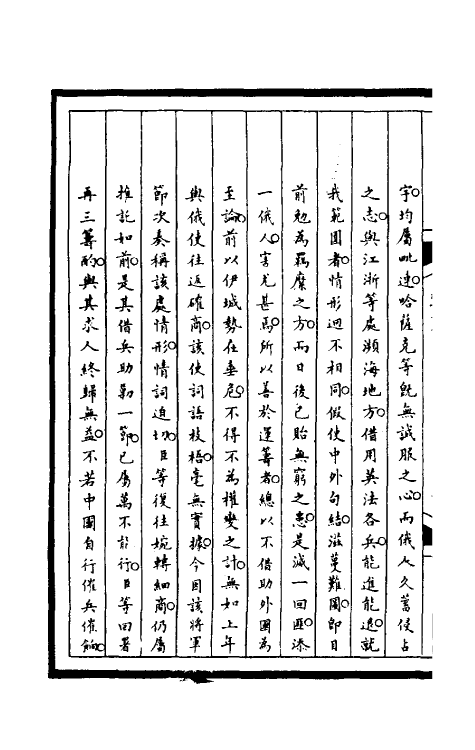 宇均屬毗連哈薩克等旣無誠服之心而俄人久蓄侵占
之志與江浙等處瀕海地方借用英法各兵能進能退就
我範圍者情形迥不相同假使中外勾結滋蔓難圖即目
前勉為羈縻之方而日後已貽無窮之患是滅一回匪添
一俄人害尤甚焉所以善於運籌者總以不借助外國為
至論前以伊城勢在垂危不得不為權變之計無如上年
與俄使往返確商該使詞語枝梧毫無實據今因該將軍
節次奏稱該處情形情詞迫切臣等復往婉轉細商仍屬
推託如前是其借兵助勦一節已屬萬不能行臣等回署
再三籌酌與其求人終歸無益不若中國自行催兵催餉